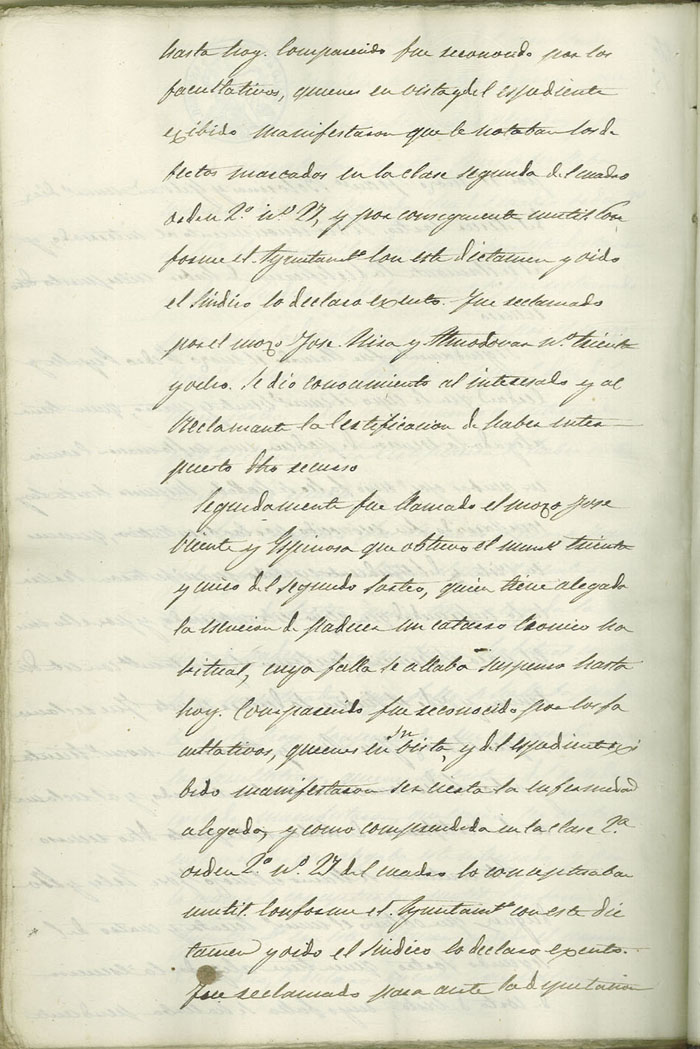 hasta hoy. Comparecido fue reconocido por los
facultativos, quienes en vista y del espediente
exibido manifestaron que le notaban los de
fectos marcados en la clase segunda del cuadro
orden 2.º nº 27, y por consiguiente inutil. Con
forme el Ayuntamtº con este dictamen y oido
el Sindico lo declaro exento. Fue reclamado
por el mozo Jose y Almodovar nº treinta
y ocho. Se dio conocimiento al interesado y al
reclamante la Certificacion de haber inter
puesto dho recurso
Seguidamente fue llamado el mozo Jose
Vicente y Espinosa que obtuvo el numº treinta
y cinco del segundo sorteo, quien tiene alegada
la esencion de padecer un catarro cronico ha
bitual, cuyo fallo se allaba suspenso hasta
hoy. Comparecido fue reconocido por los fa
cultativos, quienes en su vista, y del espediente exi
bido manifestaron ser cierta la enfermedad
alegada, y como comprendida en la clase 2.ª
orden 2.º nº 27 del cuadro lo conceptuaban
inutil. Conforme el Ayuntamtº con este dic
tamen y oido el Sindico lo declaro exento.
Fue reclamado para ante la diputacion